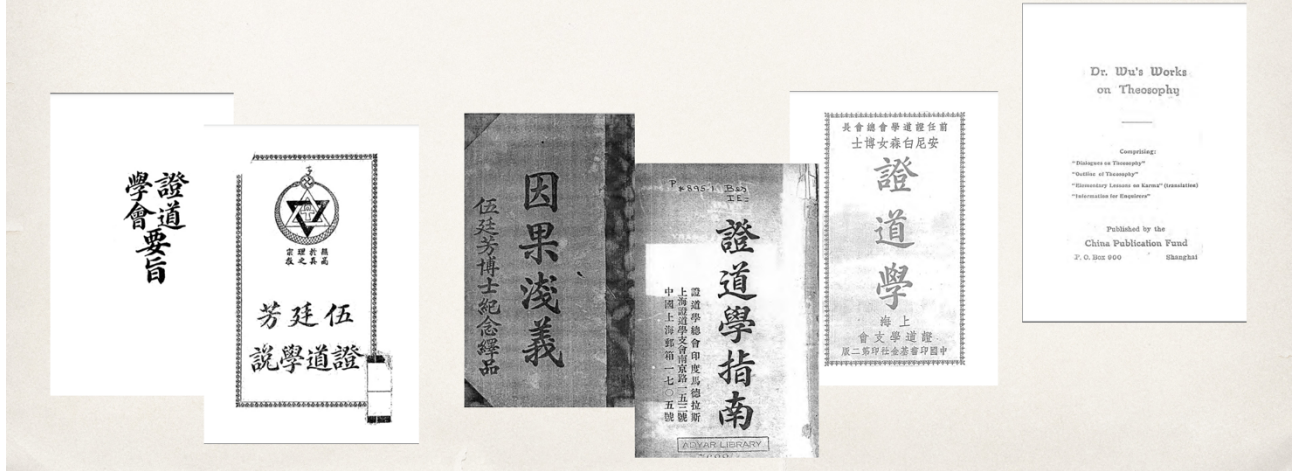 證道
學會
要旨
伍廷芳
證道學説
因果淺義
伍廷芳博士紀念繹品
證道學指南
證道學總會印度馬德拉斯
上海證道學支會南京路一五三號
中國上海郵箱一七〇五號
ADYAR LIBRARY
前任證道學會總會長
安尼白森女博士
證道學
上海
證道學支會
中國印書基金社印第二版
Dr. Wu's Works
on Theosophy
Comprising:
"Dialogues on Theosophy"
"Outline of Theosophy"
"Elementary Lessons on Karma" (translation)
"Information for Enquirers"
Published by the
China Publication Fund
P. O. Box 900 Shanghai